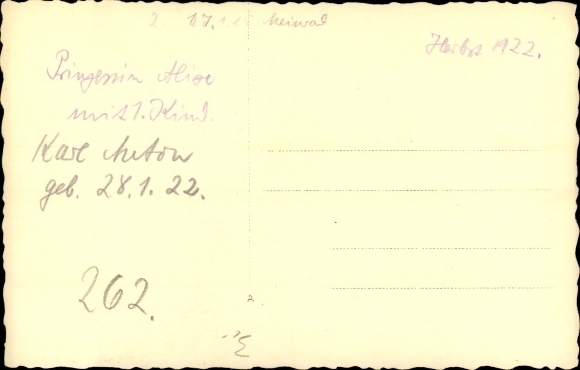 Meinrad
Herbst 1922.
Prinzessin Alix
mit 1. Kind.
Karl Anton
geb. 28.1.22.
262.
A